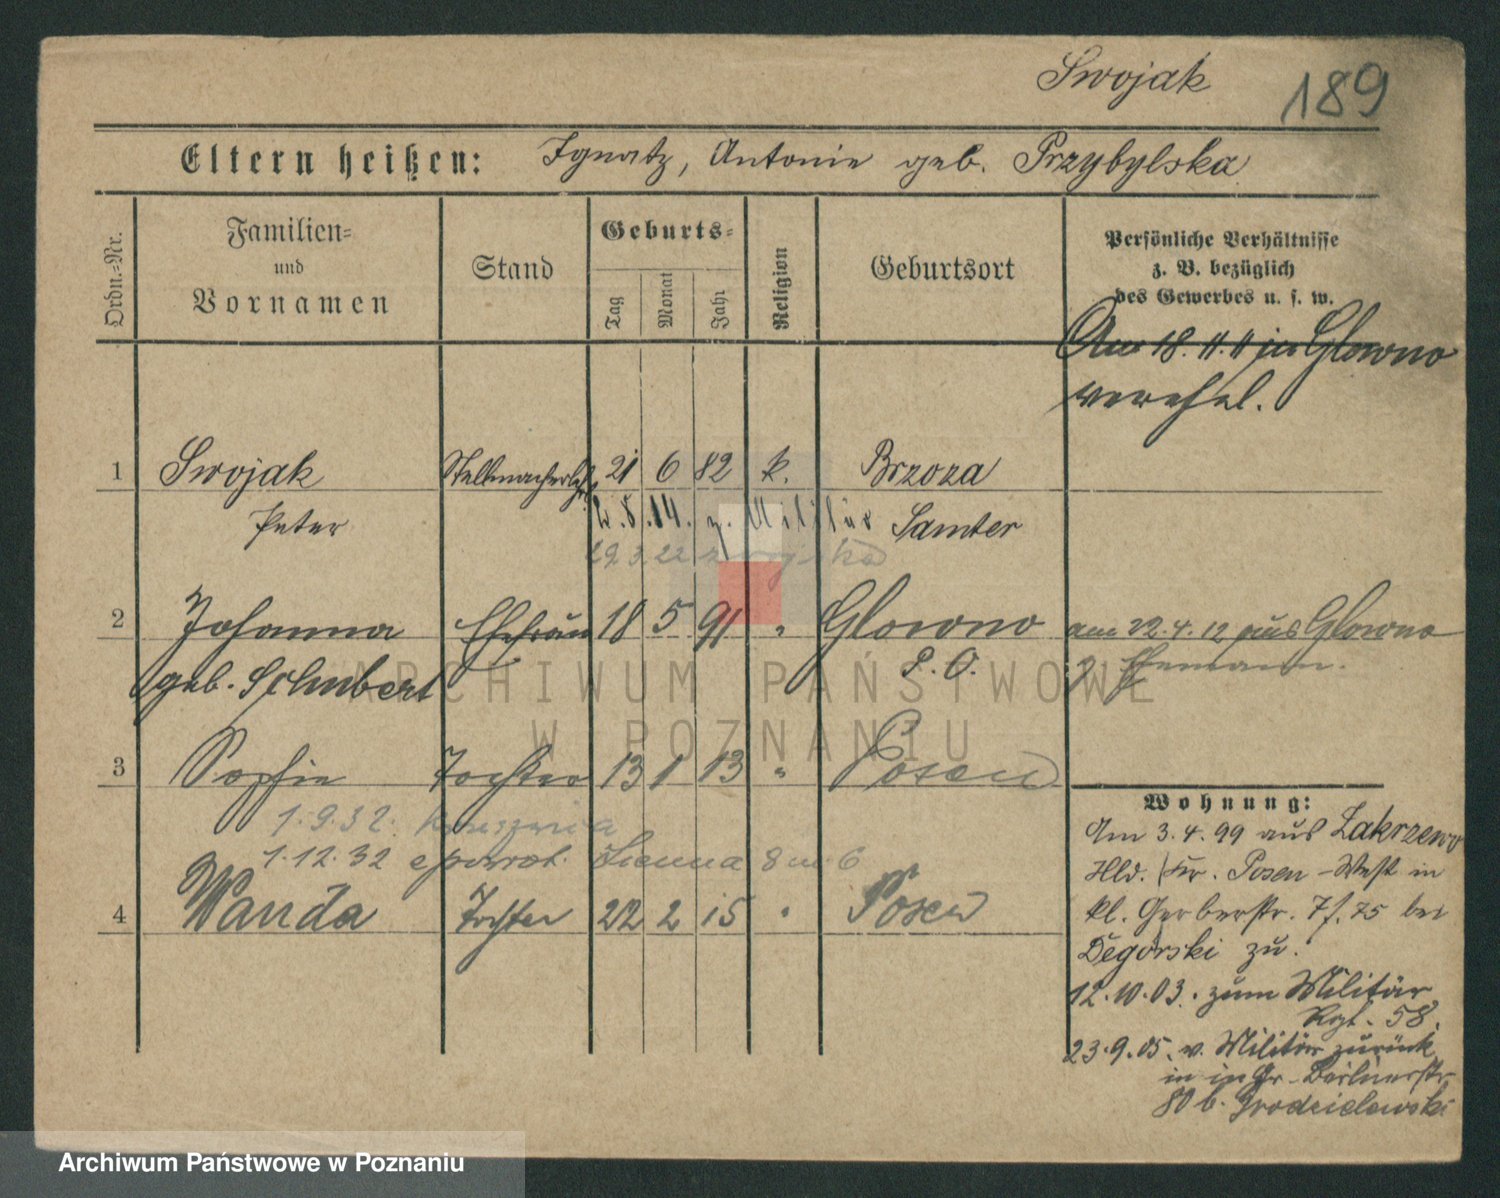 Swojak 189
Eltern heißen: Ignatz, Antonie geb. Przybylska
Ordn.-Nr.
Familien-
und
Vornamen
Stand
Geburts-
Tag
Monat
Jahr
Religion
Geburtsort
Persönliche Verhältnisse
z. B. bezüglich
des Gewerbes u. s. w.
Am 18.11.11 in Glowno
verehel.
1 Swojak 21 6 82 k. Brzoza
Peter 2.8.14. z. Militär Samter
29.3.22 z wojska
2 Johanna Ehefrau 18 5 91 " Glowno am 22.4.12 aus Glowno
geb. Schubert P. O. z. Ehemann.
3 Sophie Tochter 13 1 13 " Posen
1.9.32.
1.12.32 8 m. 6
4 Wanda Tochter 22 2 15 " Posen
Wohnung:
Am 3.4.99 aus Zakrzewo
Hld. Kr. Posen-West in
kl. Gerberstr. 7f. 75 bei
Degórski zu.
12.10.03. zum Militär
Rgt. 58.
23.9.05. v. Militär zurück
in Gr. Berlinerstr.
80 b. Grodzielewski
ARCHIWUM PAŃSTWOWE
W POZNANIU
Archiwum Państwowe w Poznaniu